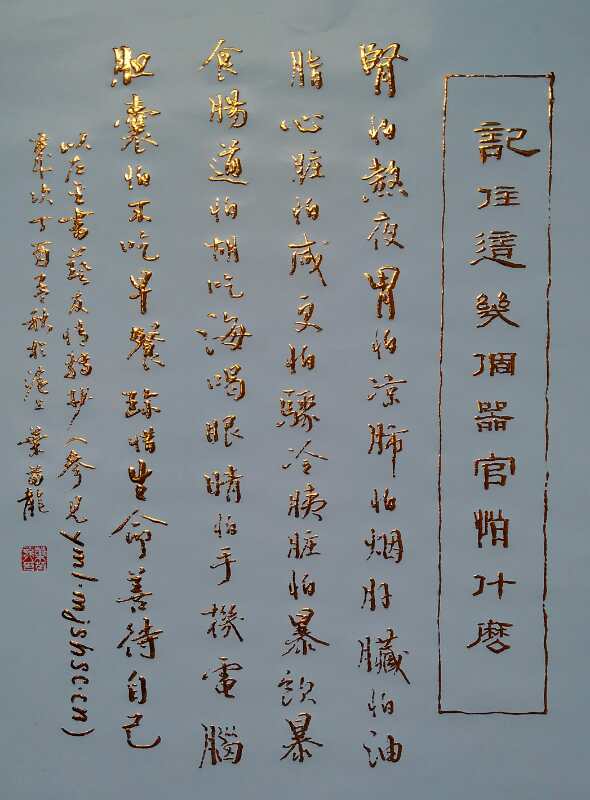 記住這幾個器官怕什麽
腎怕熬夜胃怕凉肺怕烟肝臟怕油
脂心脏怕咸更怕驟冷胰脏怕暴飲暴
食腸道怕胡吃海喝眼睛怕手機電腦
胆囊怕不吃早餐珍惜生命善待自己
以左生書藝友情轉抄(參見yml.mjshsc.cn)
歲次丁酉春秋於滬上 葉